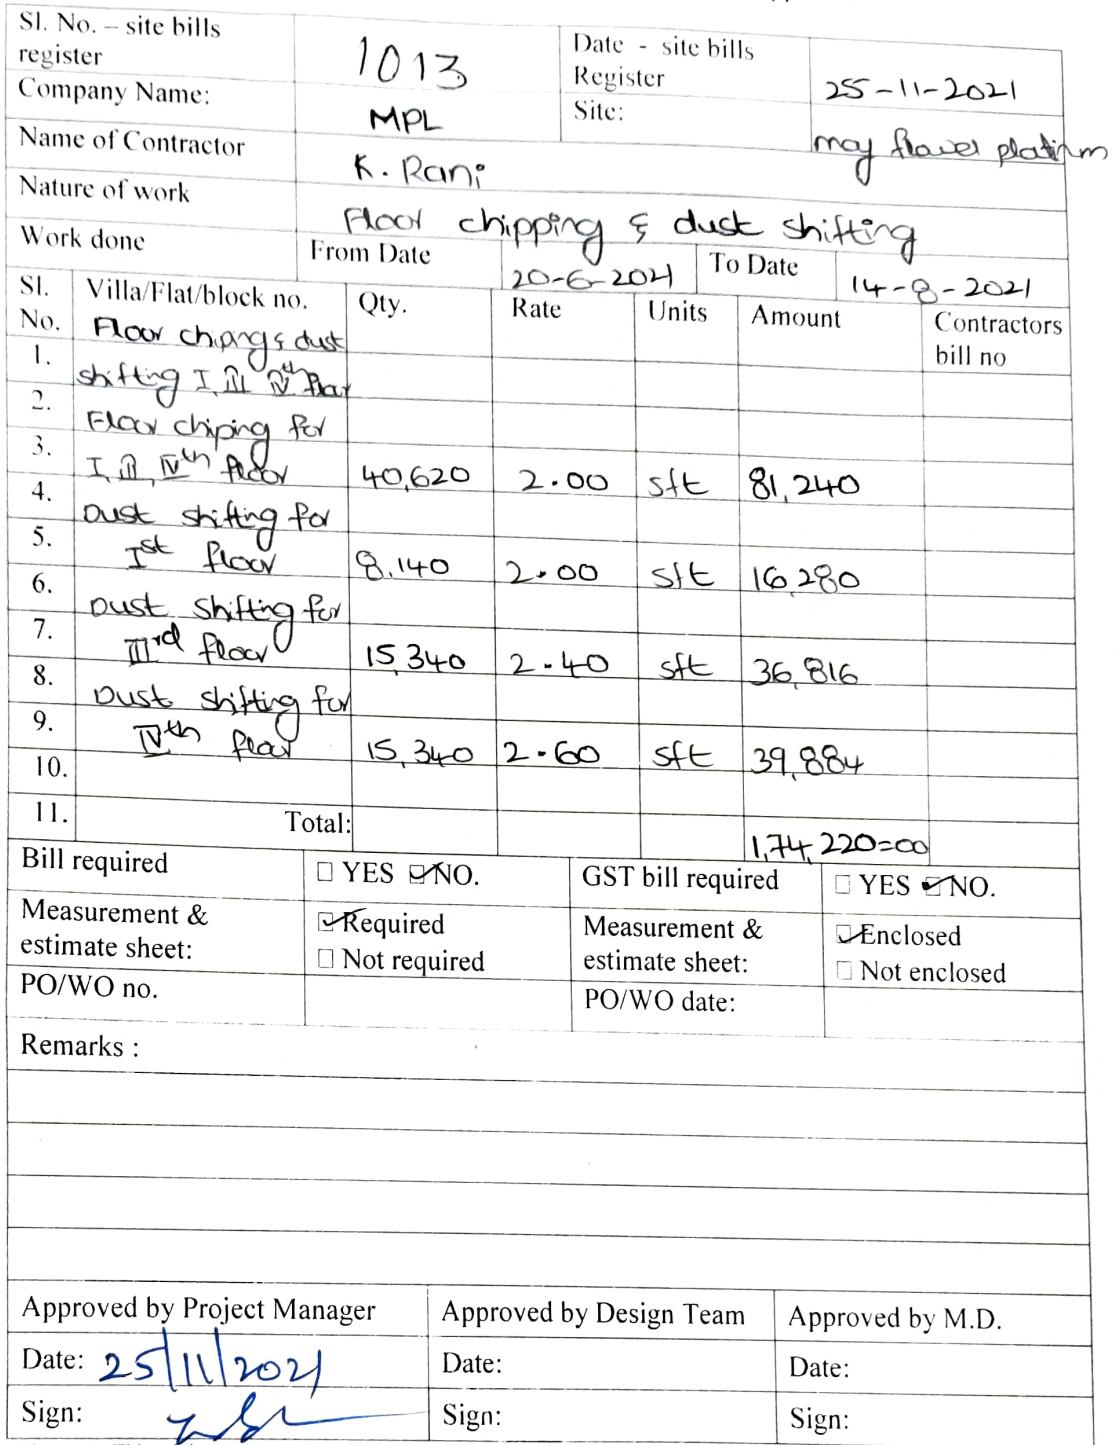 Sl. No. – site bills register 1013 Date - site bills Register 25-11-2021
Company Name: MPL Site: may flower platinm
Name of Contractor K. Rani
Nature of work Floor chipping & dust shifting
Work done From Date 20-6-2021 To Date 14-8-2021
Sl. No. Villa/Flat/block no. Qty. Rate Units Amount Contractors bill no
Floor chipng & dust
1. shifting I, III IVth floor
2. Floor chiping for
3. I, III, IVth floor 40,620 2.00 sft 81,240
4. Dust shifting for
5. Ist floor 8,140 2.00 sft 16,280
6. Dust shifting for
7. IIIrd floor 15,340 2.40 sft 36,816
8. Dust shifting for
9. IVth floor 15,340 2.60 sft 39,884
10.
11. Total: 1,74,220=00
Bill required ☐ YES ☑ NO. GST bill required ☐ YES ☑ NO.
Measurement & estimate sheet: ☑ Required Measurement & estimate sheet: ☑ Enclosed
☐ Not required ☐ Not enclosed
PO/WO no. PO/WO date:
Remarks :
Approved by Project Manager Approved by Design Team Approved by M.D.
Date: 25/11/2021 Date: Date:
Sign: Sign: Sign: